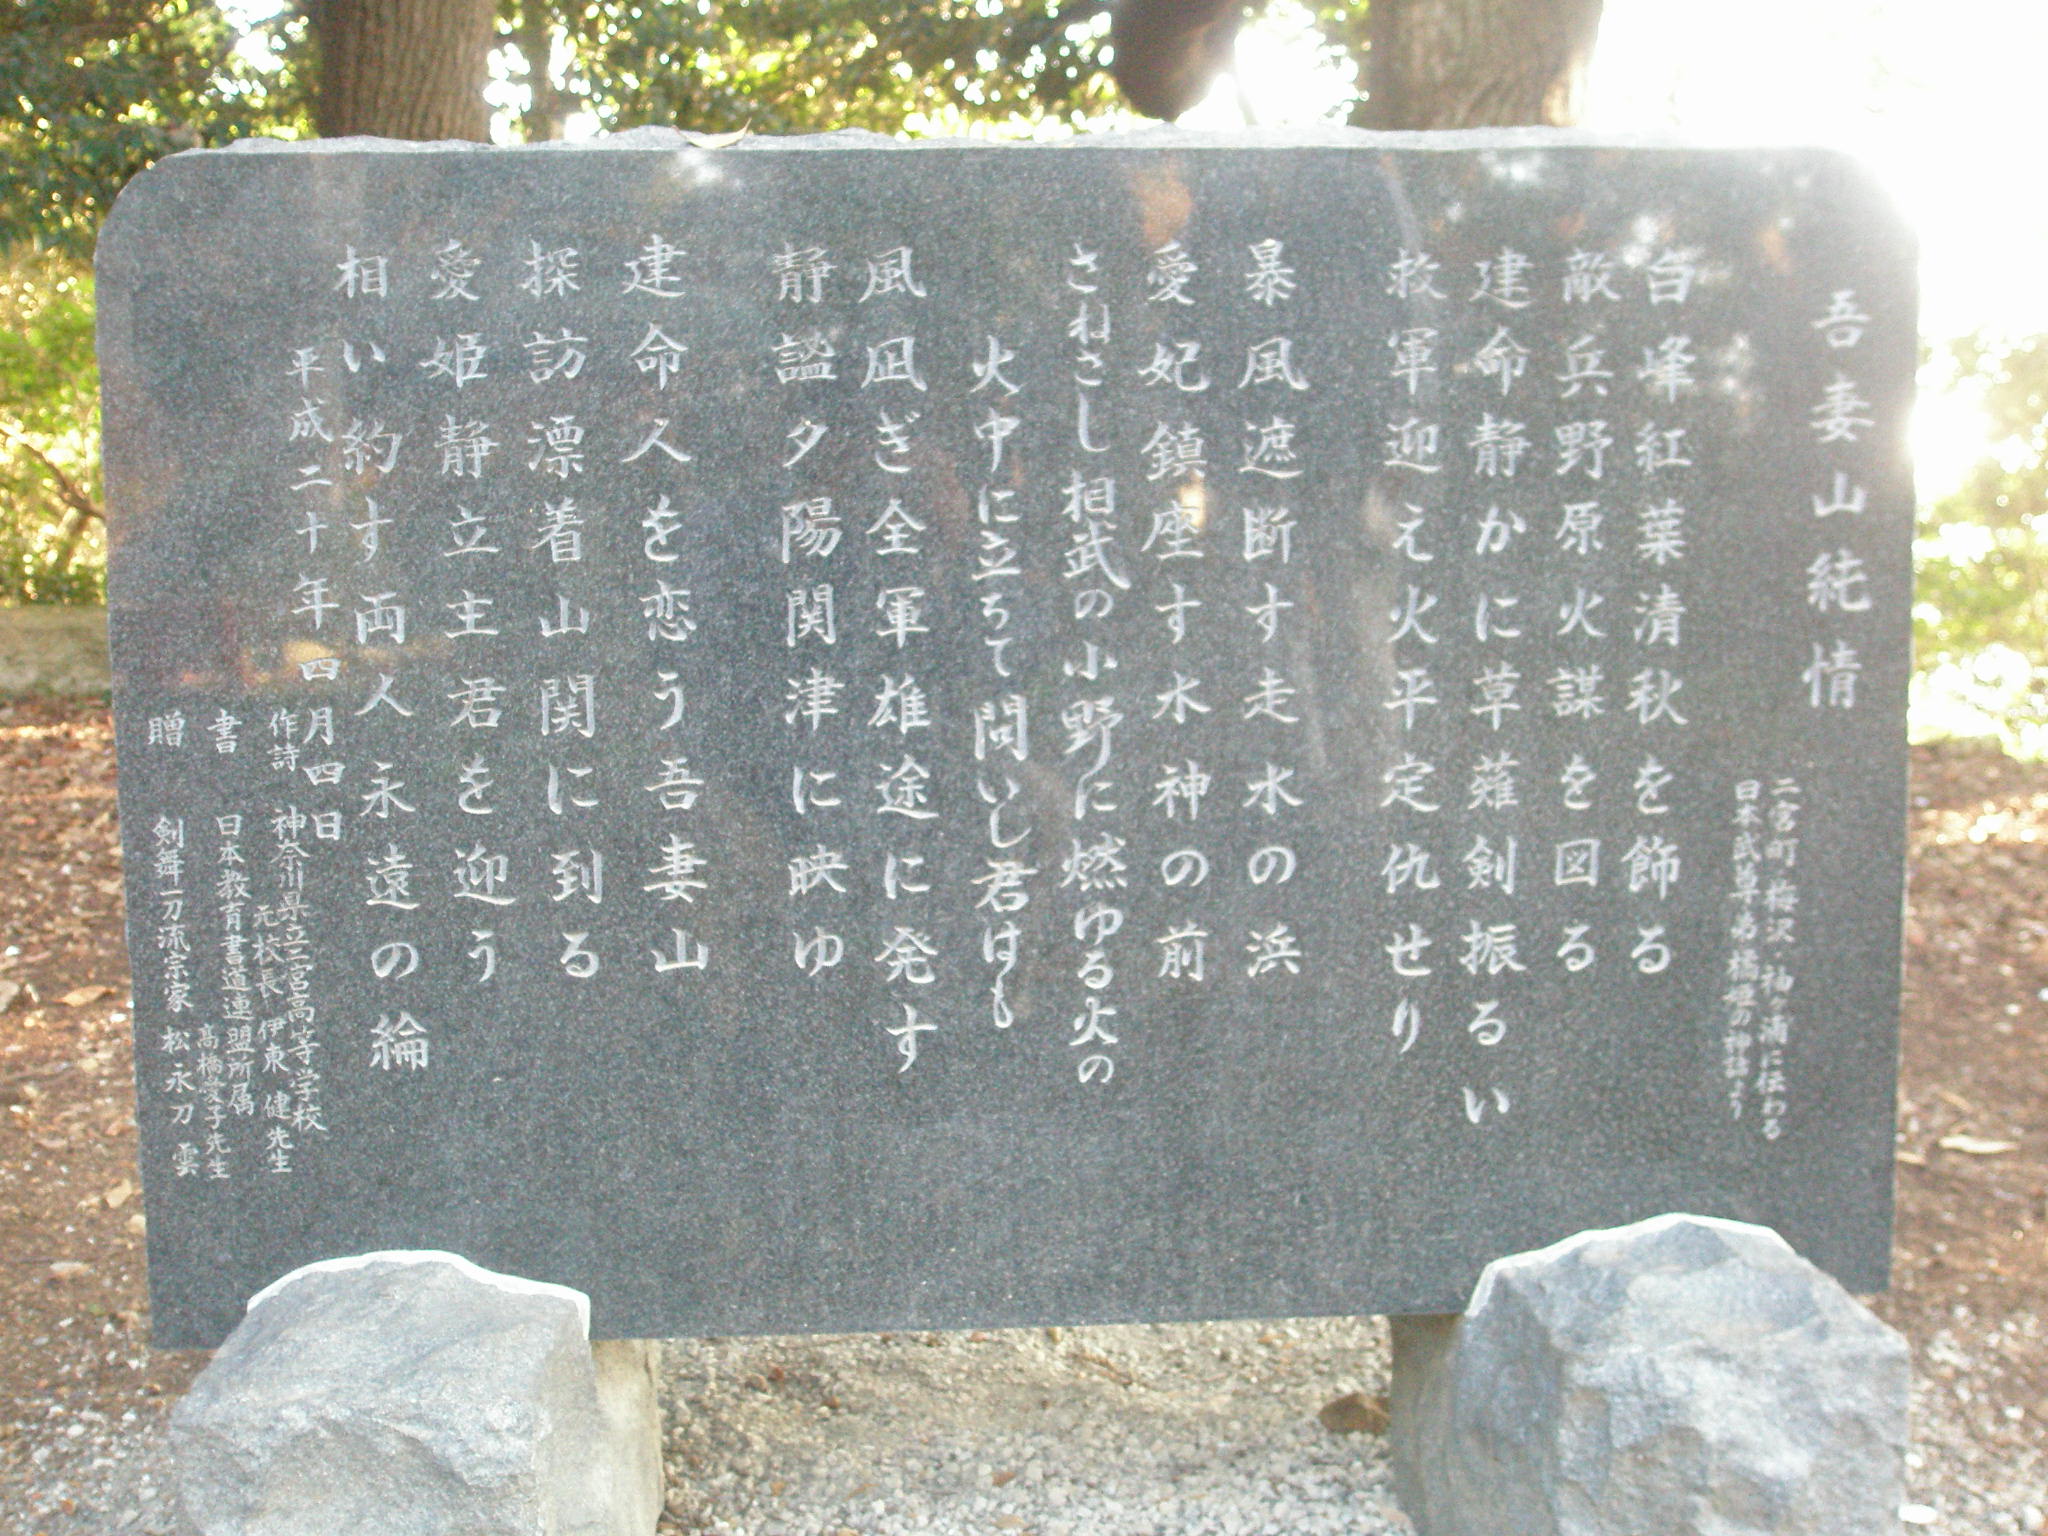 吾妻山純情
二宮町梅沢・袖ヶ浦に伝わる
日本武尊・弟橘姫の神話より
白峰紅葉清秋を飾る
敵兵野原火謀を図る
建命静かに草薙剣振るい
救軍迎え火平定仇せり
暴風遮断す走水の浜
愛妃鎮座す水神の前
さねさし相武の小野に燃ゆる火の
火中に立ちて問いし君はも
風凪ぎ全軍雄途に発す
静謐夕陽関津に映ゆ
建命人を恋う吾妻山
探訪漂着山関に到る
愛姫静立主君を迎う
相い約す両人永遠の綸
平成二十年四月四日
作詩 神奈川県立二宮高等学校
元校長 伊東 健先生
書 日本教育書道連盟所属
髙橋愛子先生
贈 剣舞一刀流宗家 松永刀雲